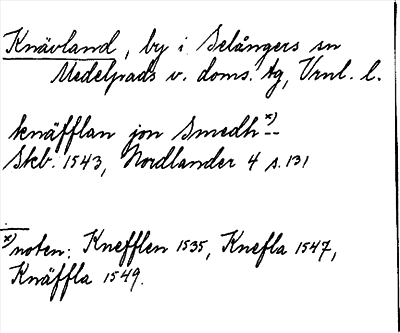 Knävland, by i Selångers sn
Medelpads v. doms. tg, Vrnl. l.
knäfflan jon Smedh x) --
Skb. 1543, Nordlander 4 s. 131
x) noten: Knefflen 1535, Knefla 1547,
Knäffla 1549.